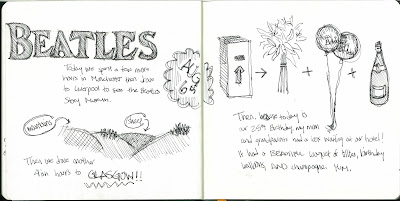 BEATLES
Today we spent a few more
hours in Manchester then drove
to Liverpool to see the Beatles
Story Museum.
AUG
mountains
sheep
Then we drove another
4ish hours to GLASGOW!!
Then, because today is
our 25th Birthday my mom
and grandparents had a box waiting at our hotel!
It had a BEAUTIFUL bouquet of lilies, birthday
balloons, AND champagne. YUM.